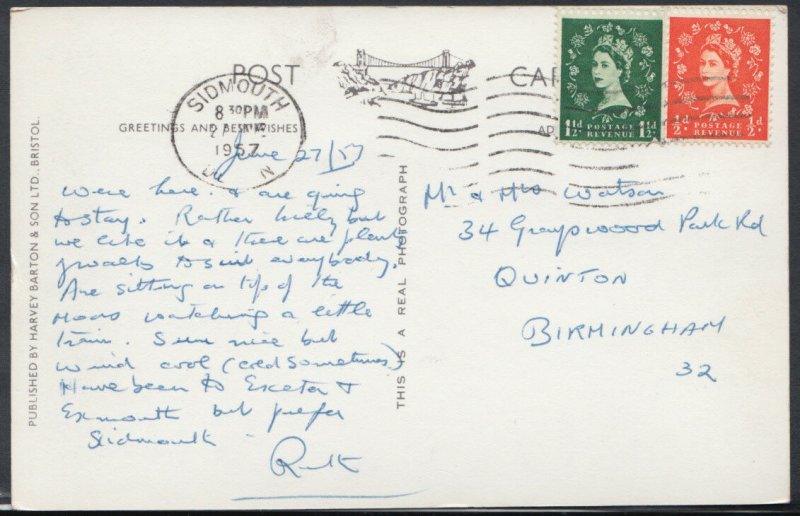 POST CARD
GREETINGS AND BEST WISHES
SIDMOUTH
8 30 PM
27
1957
DEVON
1½d POSTAGE REVENUE 1½d
½d POSTAGE REVENUE ½d
June 27/57
Were here. & are going
to stay. Rather hilly but
we like it & there are plenty
of walks to suit everybody.
Are sitting on top of the
Moors watching a little
train. Sun nice but
wind cool (cold sometimes)
Have been to Exeter &
Exmouth but prefer
Sidmouth
Ruth
Mr & Mrs Watson
34 Grayswood Park Rd
QUINTON
BIRMINGHAM
32
THIS IS A REAL PHOTOGRAPH
PUBLISHED BY HARVEY BARTON & SON LTD., BRISTOL.